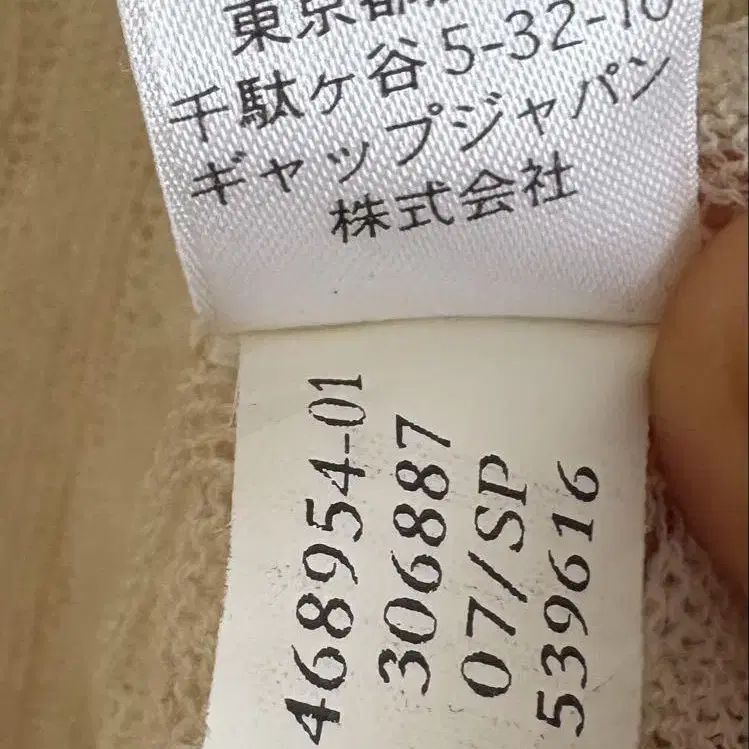 東京都
千駄ヶ谷5-32-10
ギャップジャパン
株式会社
468954-01
306887
07/SP
539616